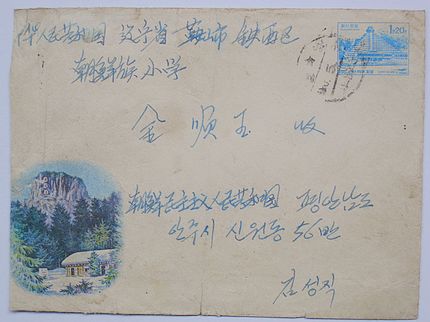 中华人民共和国 辽宁省 鞍山市 铁西区
朝鲜族小学
1원20전
金 顺 玉 收
朝鲜民主主义人民共和国 平安南道
안주시 신원동 56반
김성직